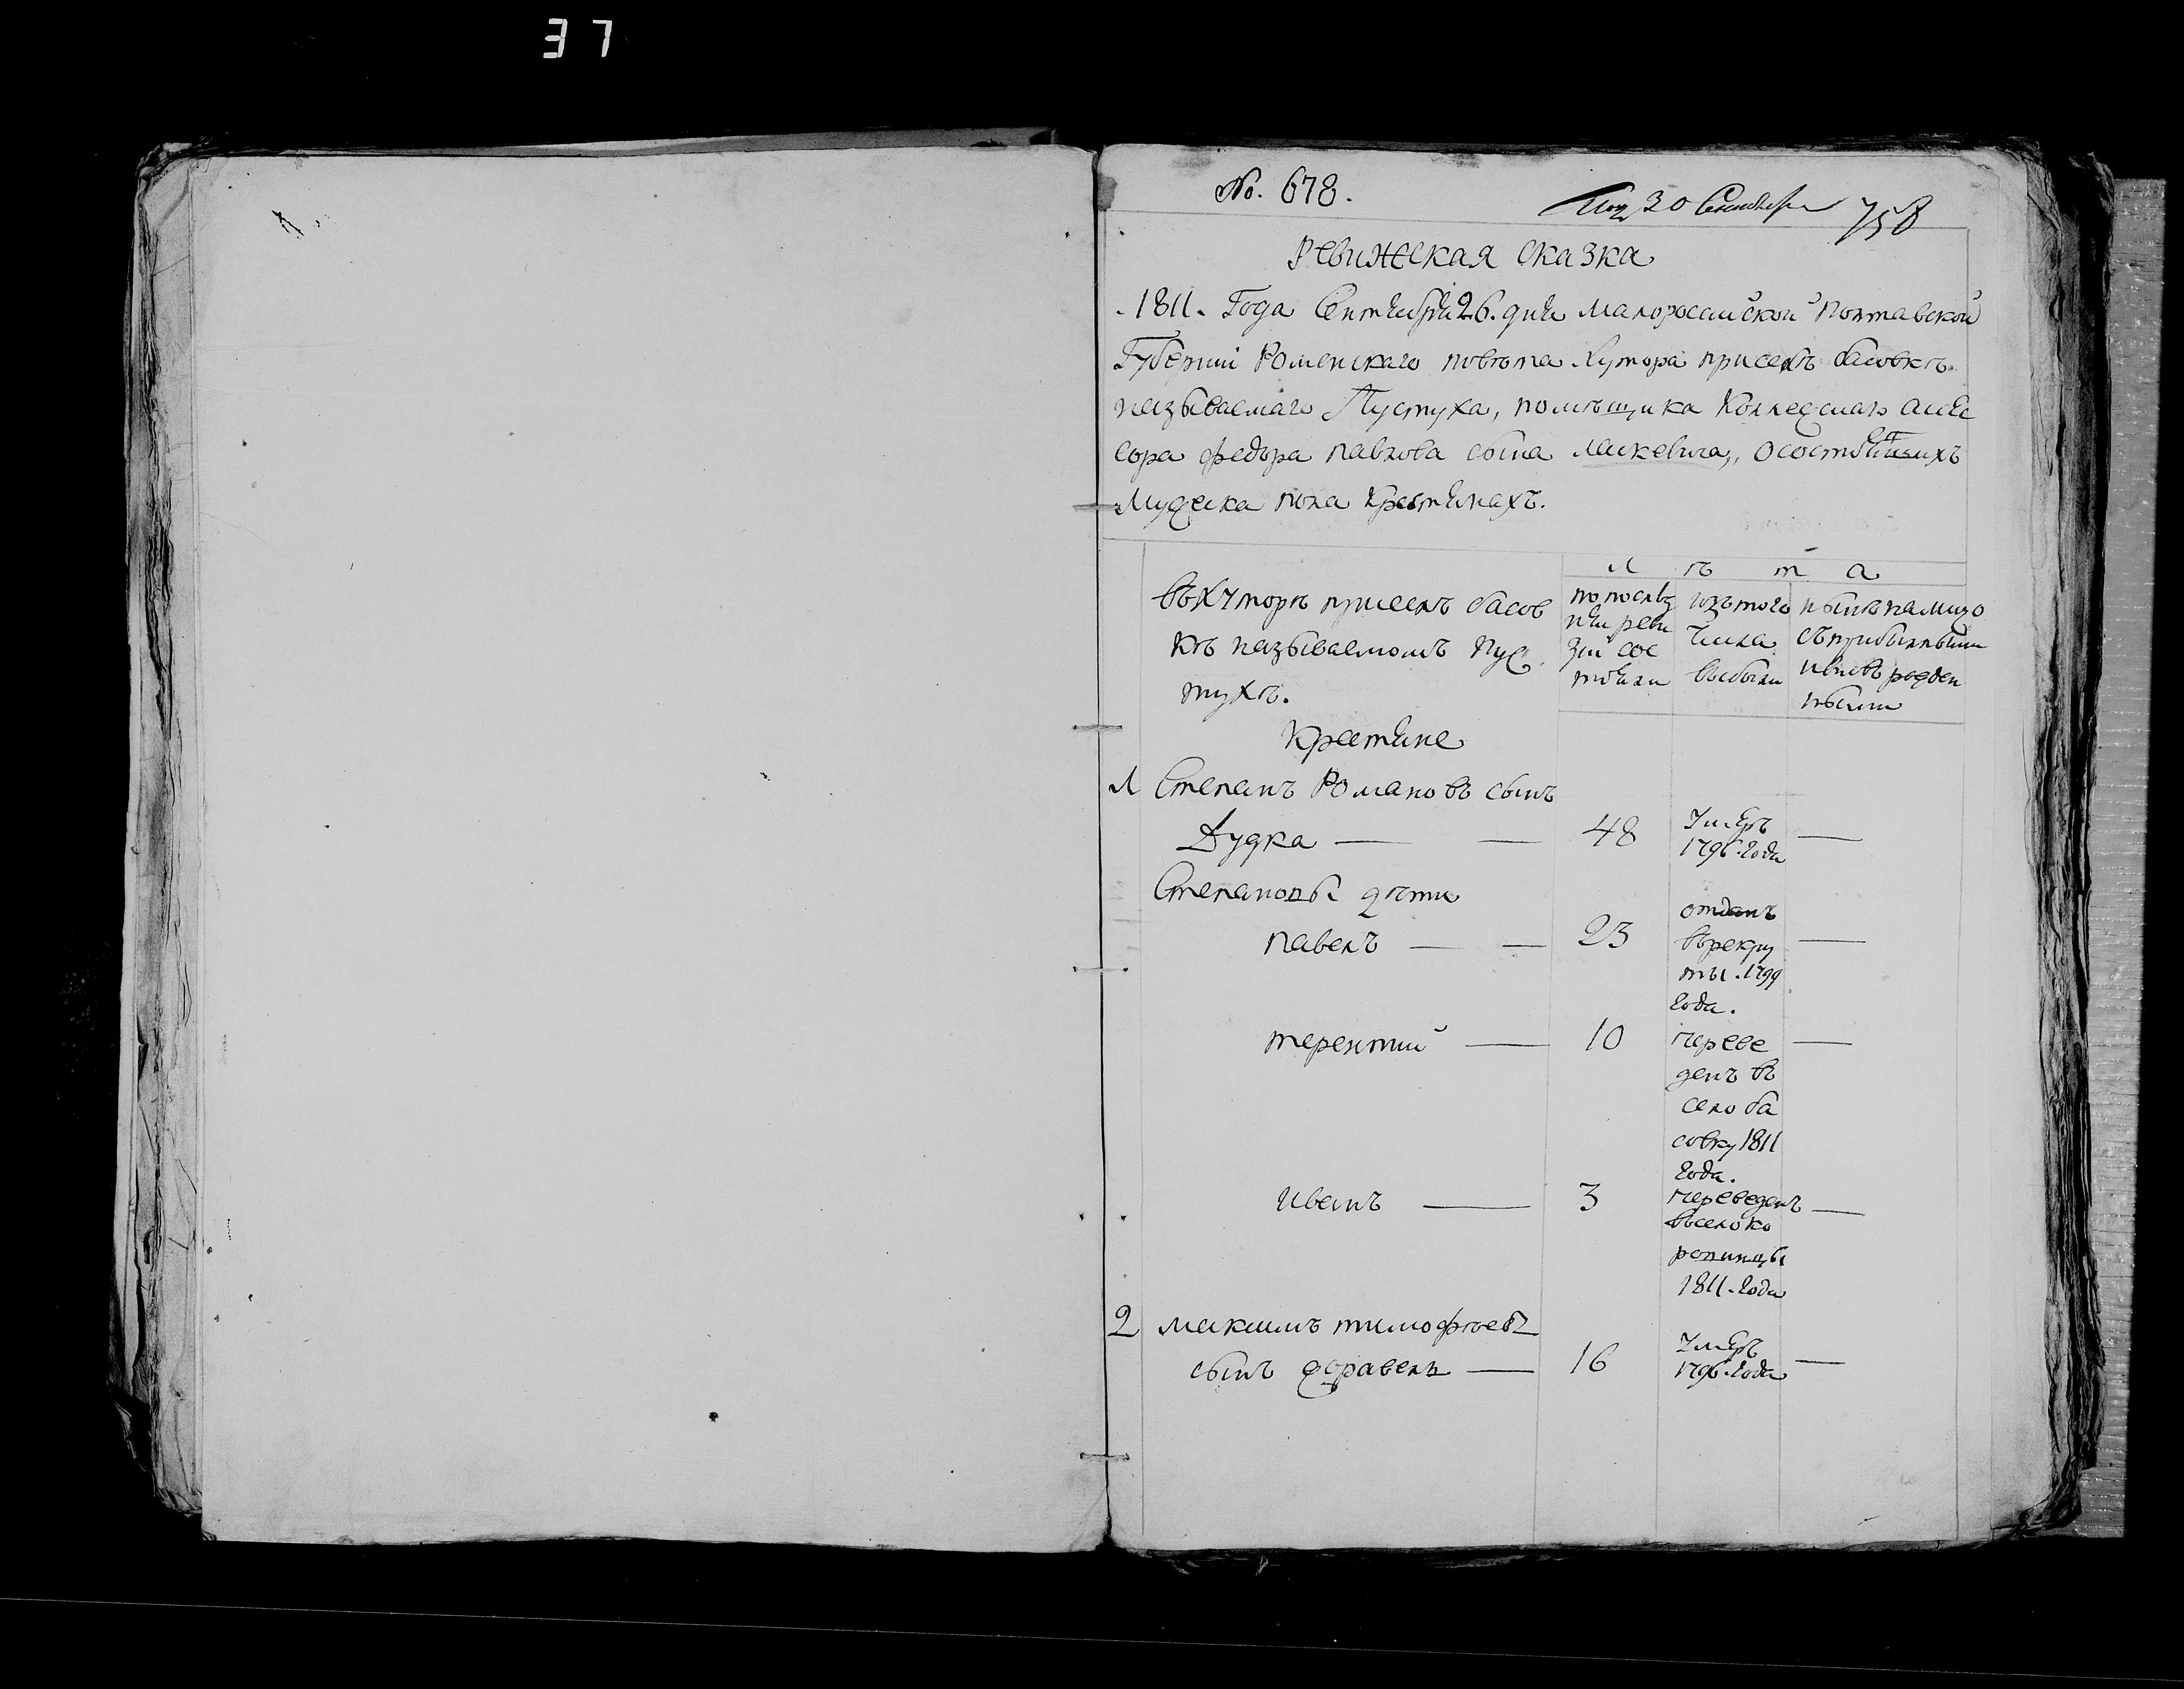 37
No. 678.
30 Сентября 758
Ревижская сказка
1811. Года Сентября 26. дня Малоросийской Полтавской
Губернии Роменскаго повѣта Хутора приселѣ басовкѣ
называемаго Пустуха, помѣщика Коллежскаго асес
сора федора павлова сына Маскевича, осостоящихъ
Мужеска пола Крестянахъ.
Л ѣ т а
въхуторѣ приселѣ басов
кѣ называемомъ Пус
тухѣ.
попослѣд
ней реви
зии сос
тояли
изътого
числа
выбыли
нынѣналицо
съприбылыми
ивновь рожден
ными
Крестяне
1 Степанъ Романовъ сынъ
Дудка — — 48 Умеръ 1796 года —
Степановы дѣти
павелъ — — 23 отданъ —
върекру
ты 1799
года.
терентий — 10 переве —
денъ въ
село ба
совку 1811
года.
иванъ — 3 переведенъ —
въсело ко
ропинцы
1811 года
2 максимъ тимофѣевъ
сынъ журавель — 16 Умеръ 1796 года —